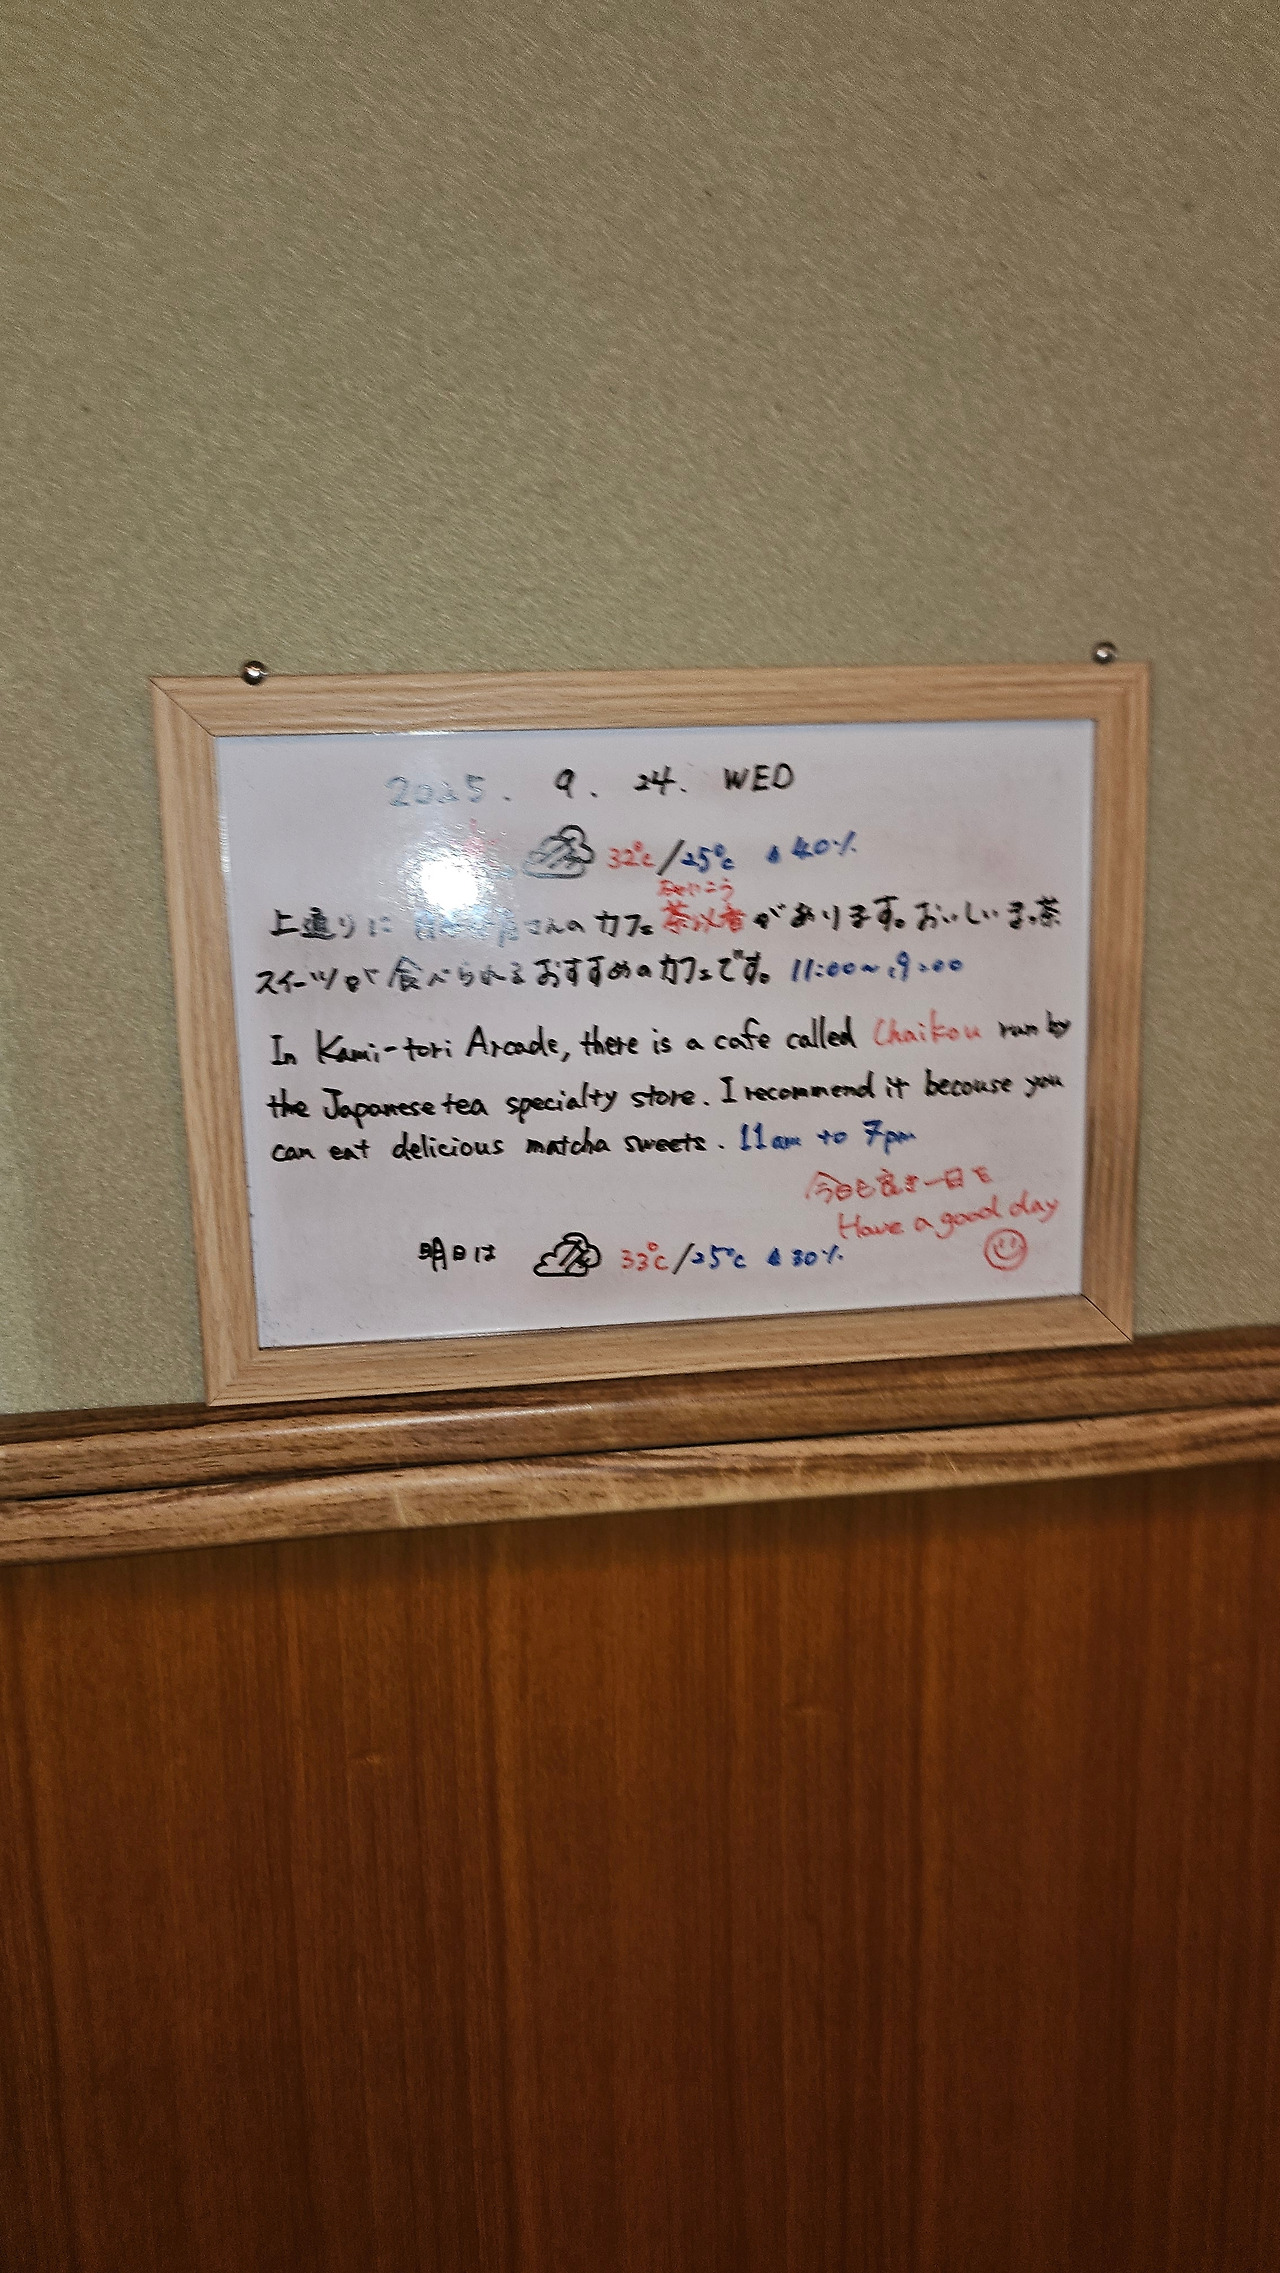 2025. 9. 24. WED
32℃/25℃ 40%
ちゃいこう
上通りに さんのカフェ 茶以香があります。おいしいまっ茶
スイーツが食べられるおすすめのカフェです。11:00~19:00
In Kami-tori Arcade, there is a cafe called Chaikou run by
the Japanese tea specialty store. I recommend it because you
can eat delicious matcha sweets. 11am to 7pm
今日も良き一日を
Have a good day
明日は 33℃/25℃ 30%